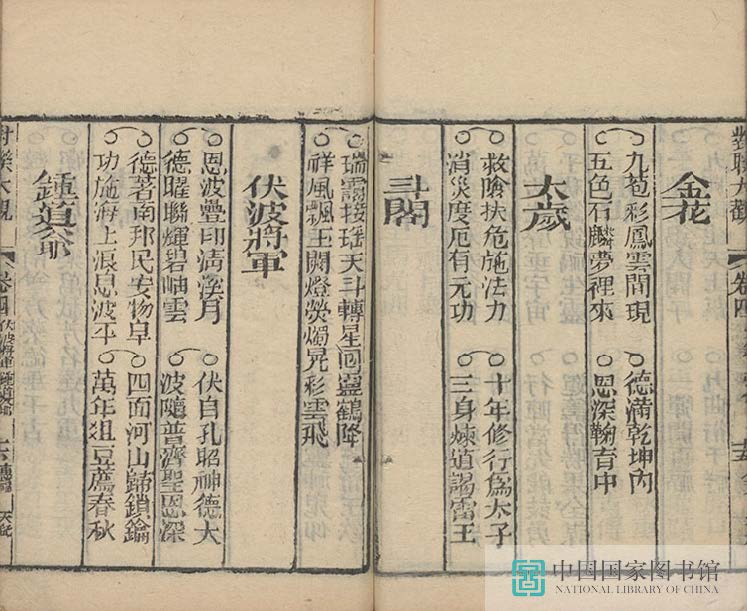 對聯大觀
卷四
金花
九苞彩鳳雲間現
德滿乾坤內
五色石麟夢裡來
恩深鞠育中
太歲
救險扶危施法力
十年修行爲太子
消災度厄有元功
三身煉道謁雷王
斗閣
瑞靄接瑤天斗轉星回靈鶴降
祥風飄玉闕燈熒燭晃彩雲飛
伏波將軍
恩波疊印淸溪月
伏自孔昭神德大
德曜聯輝碧岫雲
波隨普濟聖恩深
德著南邦民安物阜
四面河山歸鎖鑰
功施海上浪息波平
萬年俎豆薦春秋
鍾道爺
對聯大觀
卷四
伏波將軍
中国国家图书馆
NATIONAL LIBRARY OF CHINA